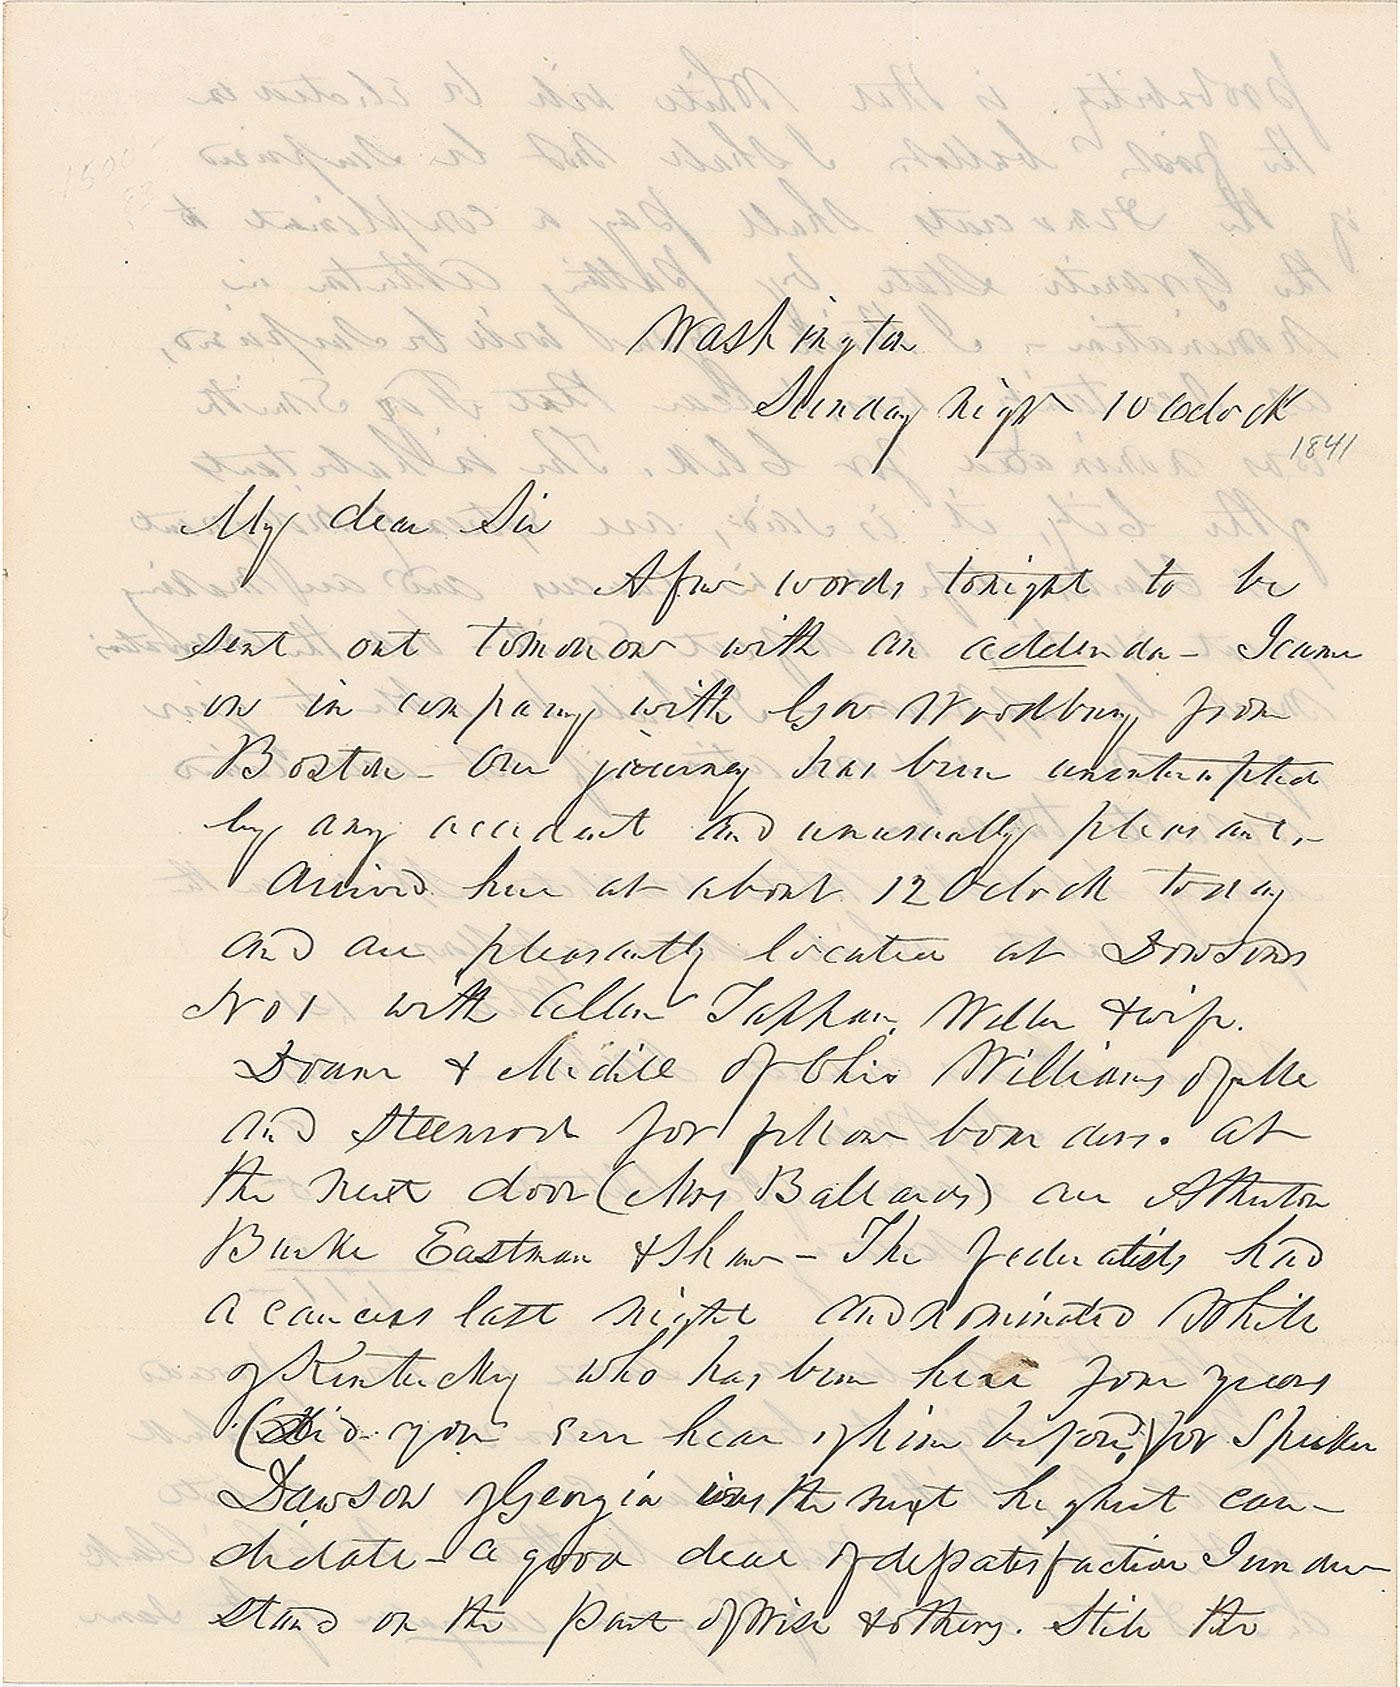 Washington
Sunday night 10 Oclock
1841
My dear Sir
A few words tonight to be
sent out tomorrow with an addenda - I came
on in company with Gov Woodbury from
Boston - Our journey has been uninterrupted
by any accident and unusually pleasant. -
Arrived here at about 12 Oclock today
and are pleasantly located at Dowsons
No 1 with Allen Tappan, Weller & wife.
Doane & Medill of Ohio Williams of Me
and Steenrod for fellow boarders. At
the next door (Mrs Ballards) are Atherton
Burke Eastman & Shaw - The federalists had
a caucus last night and nominated White
of Kentucky who has been here four years
(Did you ever hear of him before?) for Speaker
Dawson of Georgia was the next highest can-
didate - a good deal of dissatisfaction I under
stand on the part of Wise & others. Still the